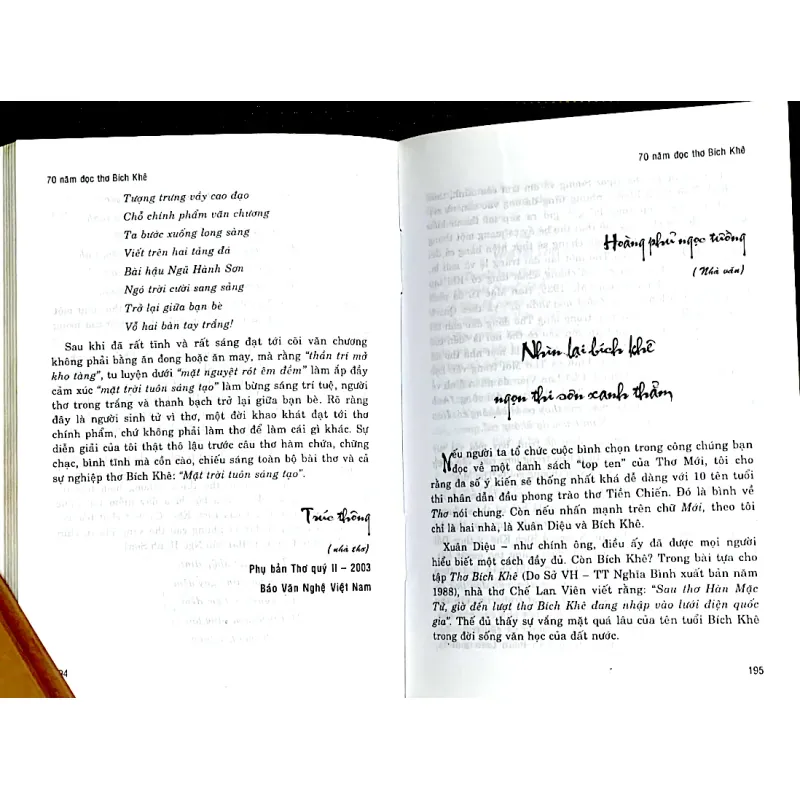 70 năm đọc thơ Bích Khê
Tượng trưng vầy cao đạo
Chỗ chính phẩm văn chương
Ta bước xuống long sàng
Viết trên hai tảng đá
Bài hậu Ngũ Hành Sơn
Ngó trời cười sang sảng
Trở lại giữa bạn bè
Vỗ hai bàn tay trắng!
Sau khi đã rất tinh và rất sáng đạt tới cõi văn chương
không phải bằng ăn đong hoặc ăn may, mà rằng “thần trí mở
kho tàng”, tu luyện dưới “mặt nguyệt rót êm đềm” làm ắp đầy
cảm xúc “mặt trời tuôn sáng tạo” làm bừng sáng trí tuệ, người
thơ trong trắng và thanh bạch trở lại giữa bạn bè. Rõ ràng
đây là người sinh tử vì thơ, một đời khao khát đạt tới thơ
chính phẩm, chứ không phải làm thơ để làm cái gì khác. Sự
diễn giải của tôi thật thô lậu trước câu thơ hàm chứa, chững
chạc, bình tĩnh mà cồn cào, chiếu sáng toàn bộ bài thơ và cả
sự nghiệp thơ Bích Khê: “Mặt trời tuôn sáng tạo”.
Trúc thông
(nhà thơ)
Phụ bản Thơ quý II – 2003
Báo Văn Nghệ Việt Nam
94
70 năm đọc thơ Bích Khê
Hoàng phủ ngọc tường
(Nhà văn)
Nhìn lại bích khê
ngọn thi sơn xanh thẳm
Nếu người ta tổ chức cuộc bình chọn trong công chúng bạn
đọc về một danh sách “top ten” của Thơ Mới, tôi cho
rằng đa số ý kiến sẽ thống nhất khá dễ dàng với 10 tên tuổi
thi nhân dẫn đầu phong trào thơ Tiền Chiến. Đó là bình về
Thơ nói chung. Còn nếu nhấn mạnh trên chữ Mới, theo tôi
chỉ là hai nhà, là Xuân Diệu và Bích Khê.
Xuân Diệu – như chính ông, điều ấy đã được mọi người
hiểu biết một cách đầy đủ. Còn Bích Khê? Trong bài tựa cho
tập Thơ Bích Khê (Do Sở VH – TT Nghĩa Bình xuất bản năm
1988), nhà thơ Chế Lan Viên viết rằng: “Sau thơ Hàn Mặc
Tử, giờ đến lượt thơ Bích Khê đang nhập vào lưới điện quốc
gia”. Thế đủ thấy sự vắng mặt quá lâu của tên tuổi Bích Khê
trong đời sống văn học của đất nước.
195